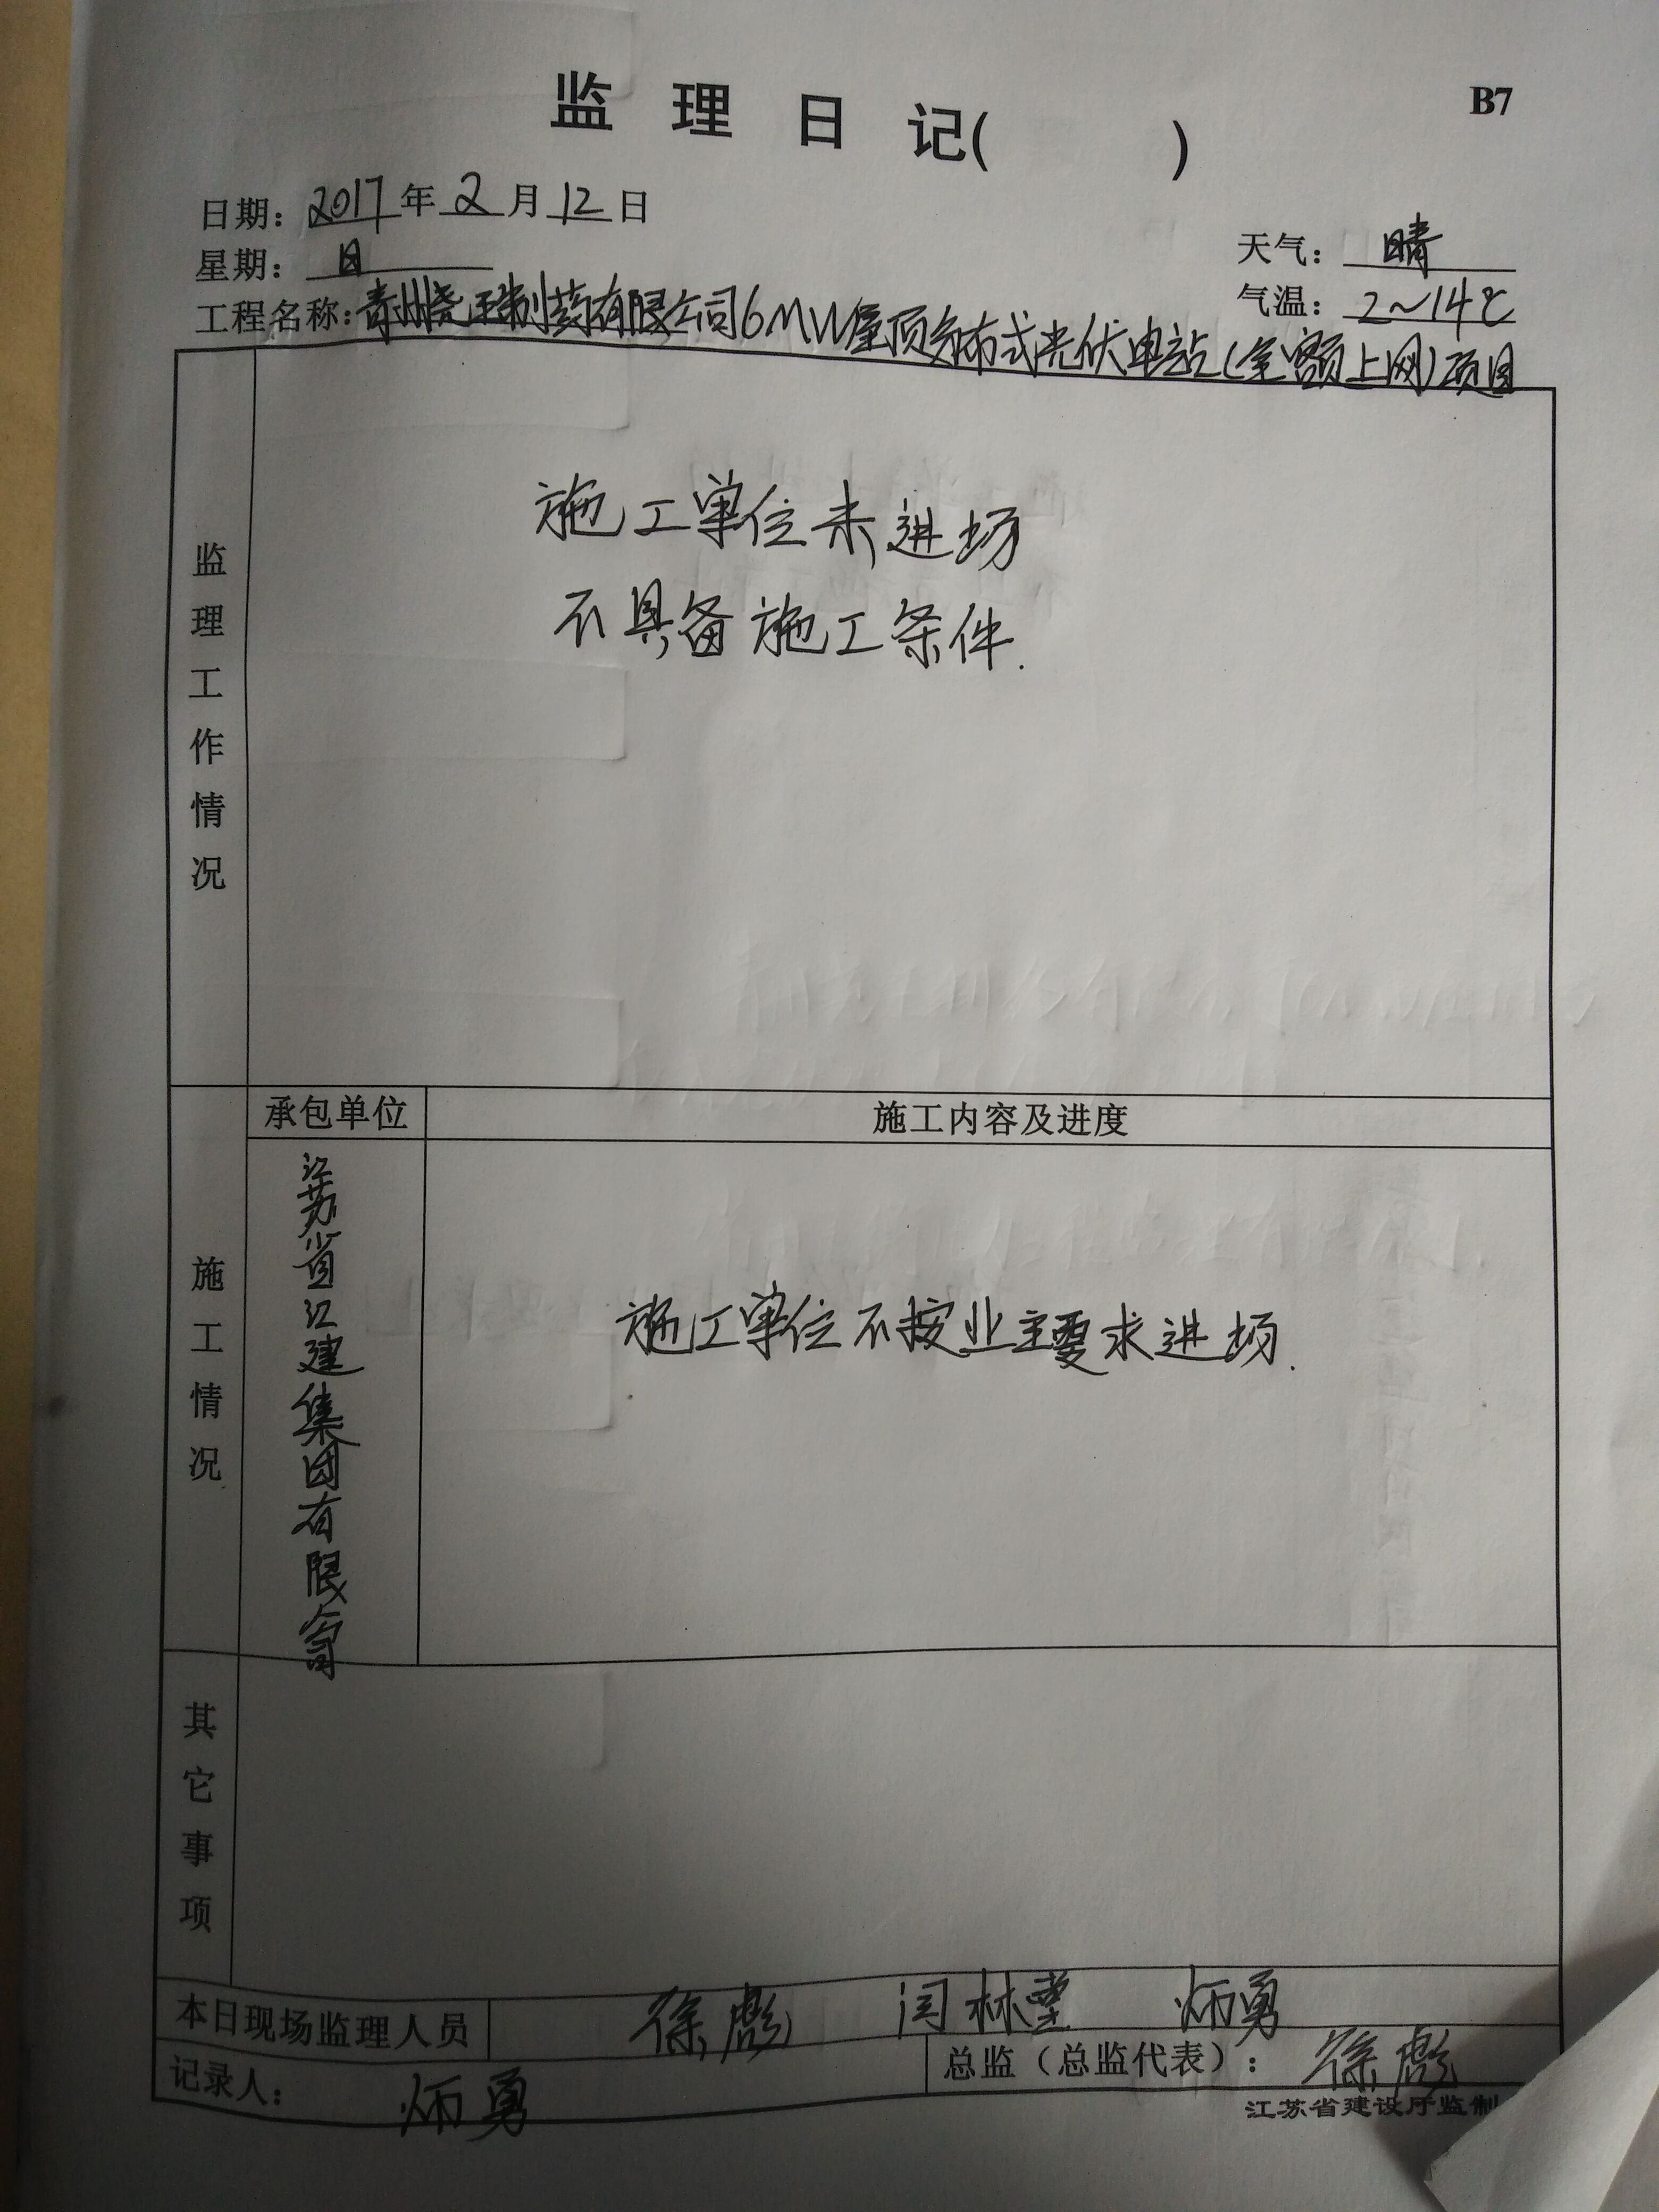 监理日记( )
B7
日期：2017年2月12日
星期：日
天气：晴
工程名称：青州尧王制药有限公司6MW屋顶分布式光伏电站(全额上网)项目
气温：2~14℃
监理工作情况
施工单位未进场
不具备施工条件.
施工情况
承包单位
施工内容及进度
江苏省江建集团有限公司
施工单位不按业主要求进场.
其它事项
本日现场监理人员
徐彪 闫林 炳勇
记录人：
炳勇
总监（总监代表）：
徐彪
江苏省建设厅监制